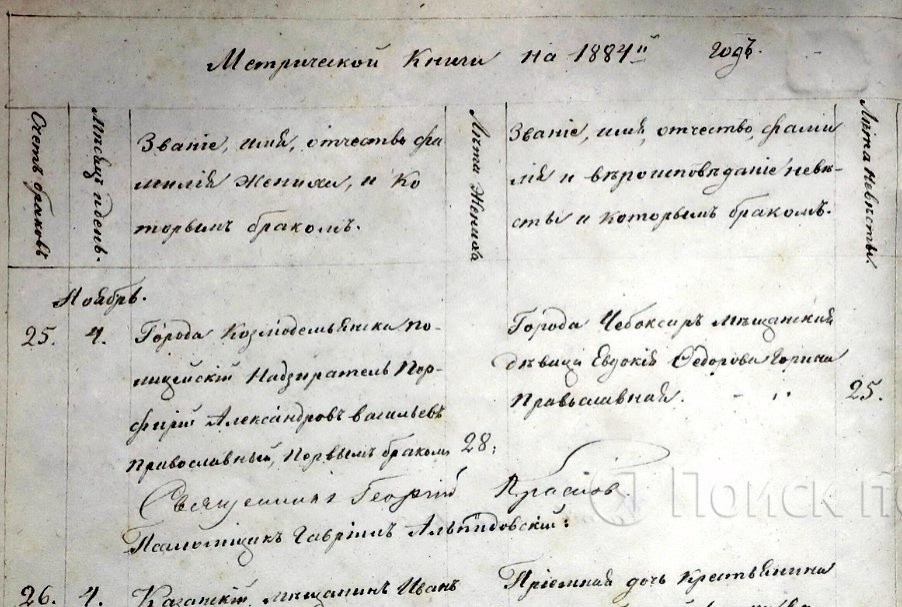 Метрической Книги на 1884й годъ.
Счетъ браковъ
Мѣсяцъ и день.
Званіе, имя, отчество фа
милія жениха, и ко
торымъ бракомъ.
Лѣта жениха
Званіе, имя, отчество, фами
лія и вѣроисповѣданіе невѣ-
сты и которымъ бракомъ.
Лѣта невѣсты.
Ноябрь.
25. 4.
Города Козмодемьянска по-
лицейскій Надзиратель Пор-
фирій Александровъ Васильевъ
православный, первымъ бракомъ
28;
Города Чебоксаръ Мѣщанский
дѣвица Евдокія Ѳедорова
Православная.
25.
Священникъ Георгій
Псаломщикъ Гавріилъ
26. 4.
Мѣщанинъ Иванъ
Пріемная дочь крестьянина
Поиск п